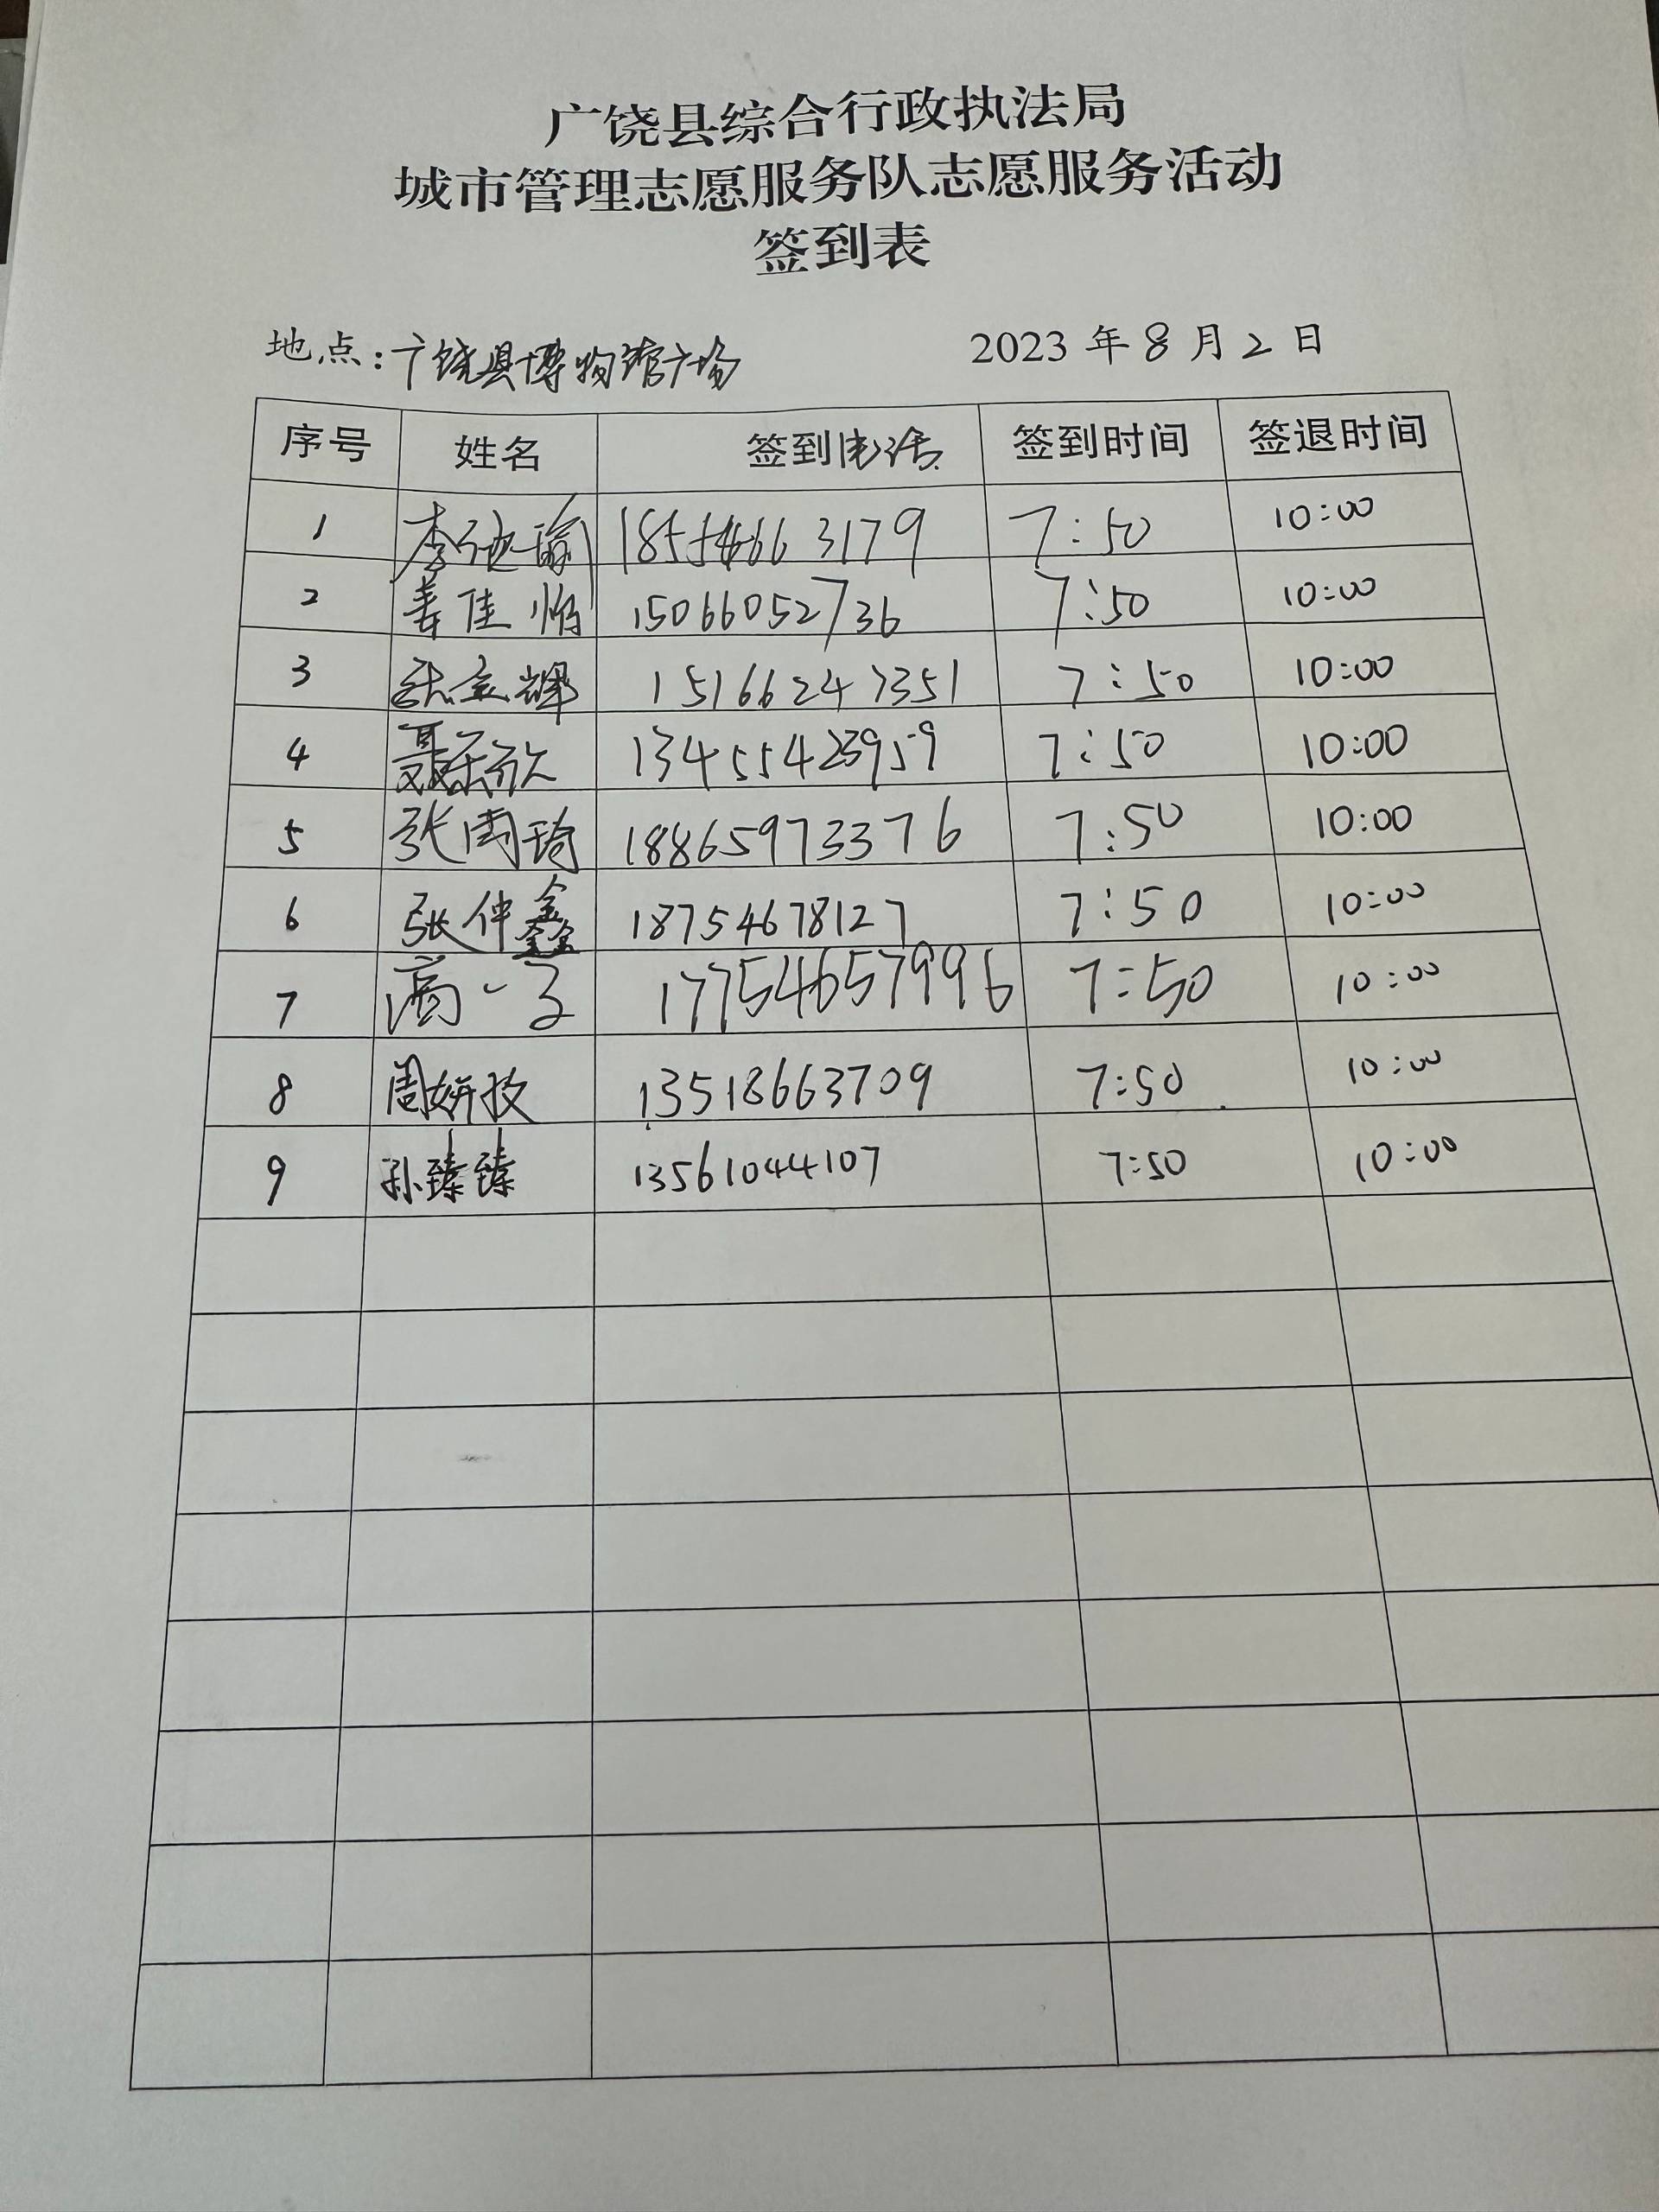 广饶县综合行政执法局
城市管理志愿服务队志愿服务活动
签到表
地点：广饶县博物馆广场 2023年8月2日
序号 姓名 签到电话 签到时间 签退时间
1 李 瑜 3179 7:50 10:00
2 姜佳 15066052736 7:50 10:00
3 辉 15166247351 7:50 10:00
4 聂 13455423959 7:50 10:00
5 张雨琦 18865973376 7:50 10:00
6 张仲鑫 18754678127 7:50 10:00
7 高一子 17754657996 7:50 10:00
8 周妍 13518663709 7:50 10:00
9 孙臻臻 13561044107 7:50 10:00